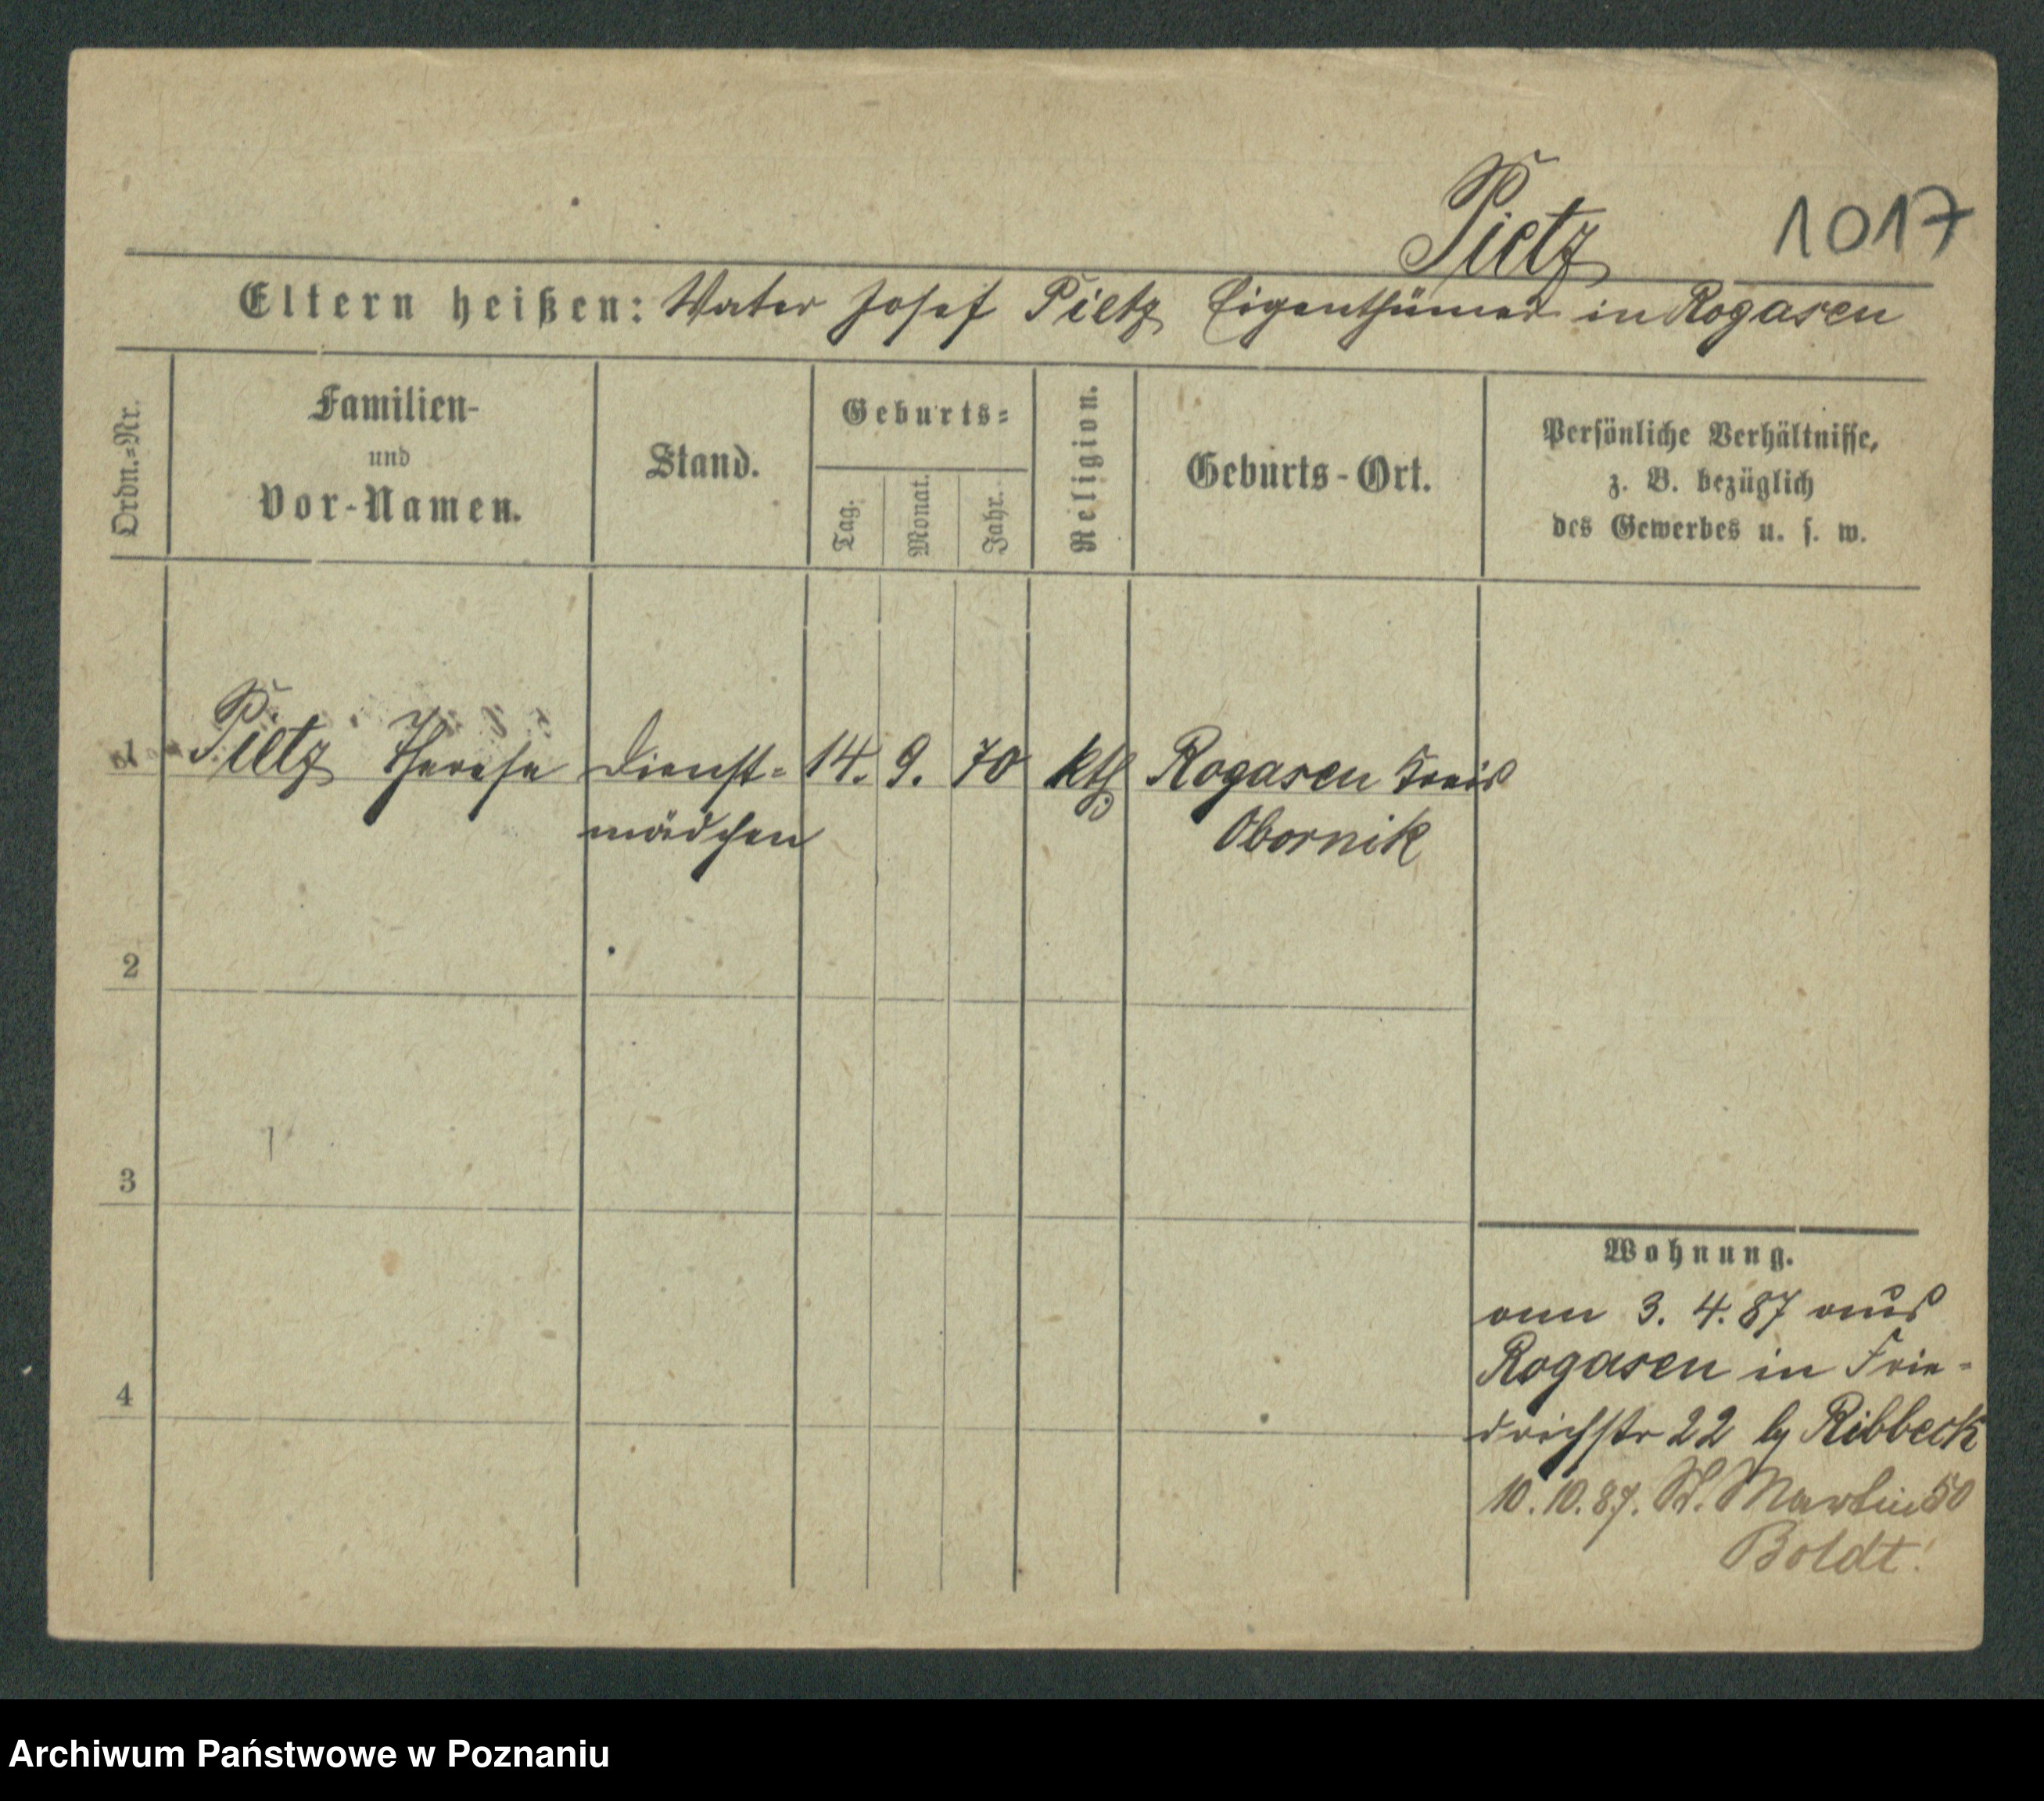 Pietz
1017
Eltern heißen: Vater Josef Pietz Eigenthümer in Rogasen
Ordn.-Nr.
Familien-
und
Vor-Namen.
Stand.
Geburts-
Tag.
Monat.
Jahr.
Religion.
Geburts-Ort.
Persönliche Verhältnisse,
z. B. bezüglich
des Gewerbes u. s. w.
1 Pietz Therese Dienst- 14. 9. 70 kth Rogasen Kreis
mädchen Obornik
2
3
4
Wohnung.
am 3. 4. 87 aus
Rogasen in Frie-
drichstr 22 by Ribbeck
10. 10. 87. St. Martin 50
Boldt.
Archiwum Państwowe w Poznaniu